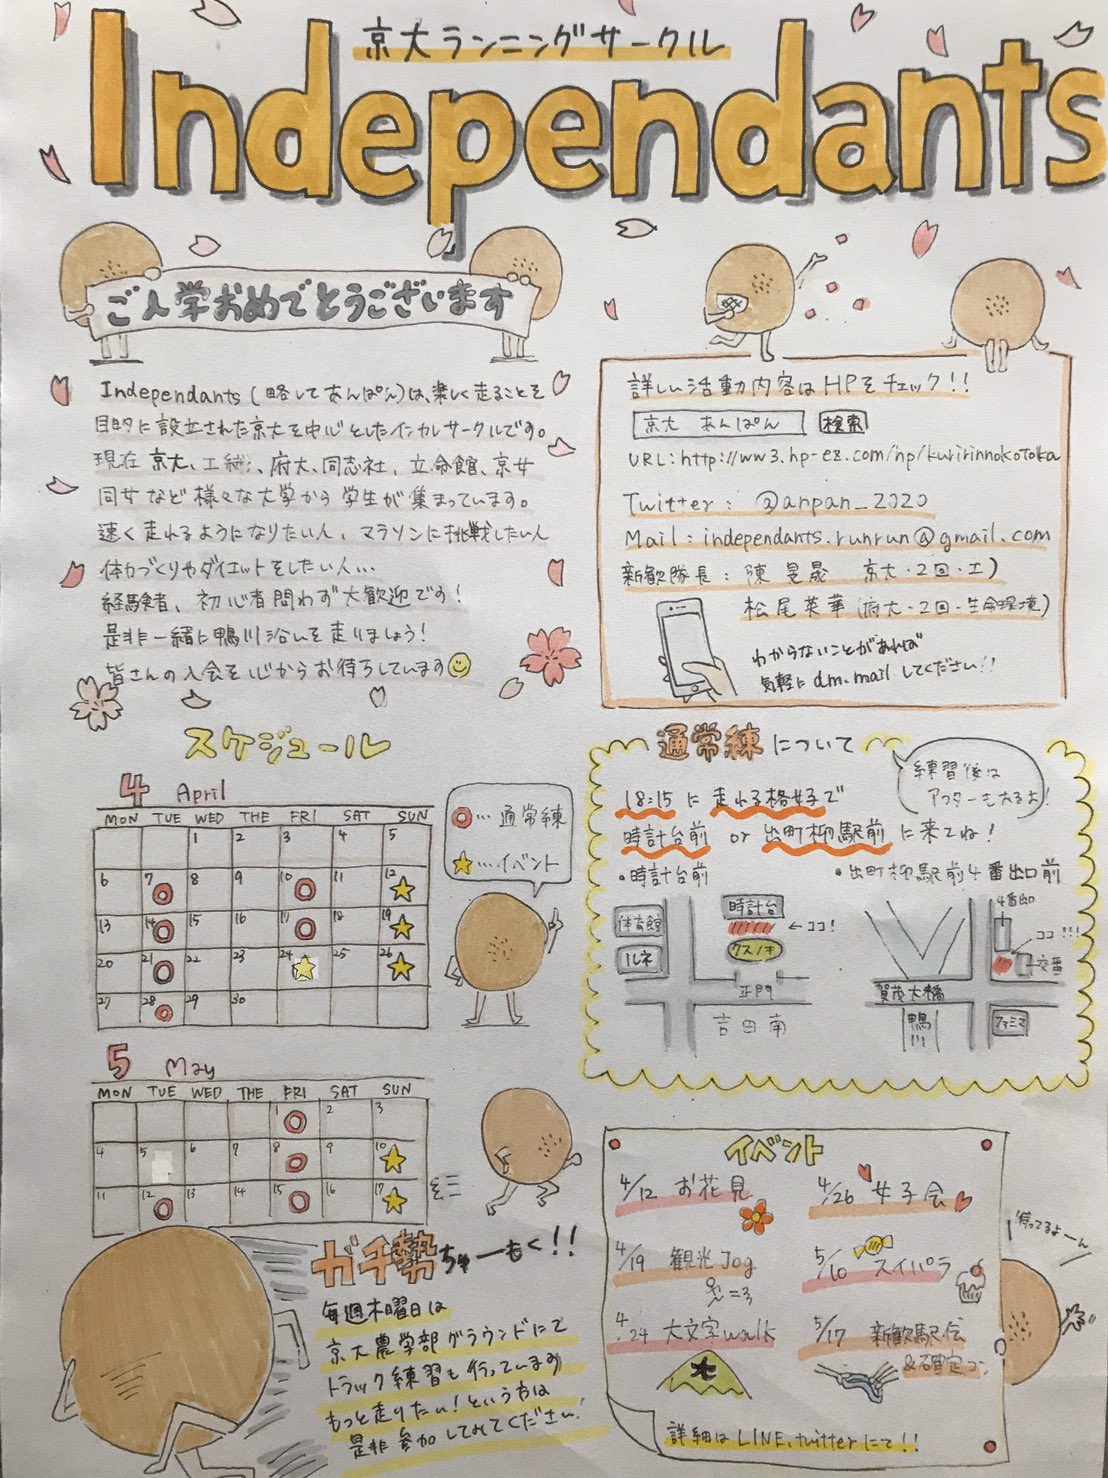 京大ランニングサークル
Independants
ご入学おめでとうございます
Independants(略してあんぱん)は、楽しく走ることを
目的に設立された京大を中心としたインカレサークルです。
現在 京大、工繊、府大、同志社、立命館、京女
同女など様々な大学から学生が集まっています。
速く走れるようになりたい人、マラソンに挑戦したい人
体力づくりやダイエットをしたい人...
経験者、初心者問わず大歓迎です!
是非一緒に鴨川沿いを走りましょう!
皆さんの入会を心からお待ちしています
詳しい活動内容はHPをチェック!!
京大 あんぱん 検索
URL:http://ww3.hp-ez.com/hp/kuririnnokotoka
Twitter: @anpan_2020
Mail:independants.runrun@gmail.com
新歓隊長: 陳 昱晟 京大・2回・工)
松尾英華(府大・2回・生命環境)
わからないことがあれば
気軽にdm.mailしてください!!
スケジュール
4 April
MON TUE WED THE FRI SAT SUN
1 2 3 4 5
6 7 8 9 10 11 12
13 14 15 16 17 18 19
20 21 22 23 24 25 26
27 28 29 30
◎…通常練
★…イベント
5 May
MON TUE WED THE FRI SAT SUN
1 2 3
4 5 6 7 8 9 10
11 12 13 14 15 16 17
通常練について
練習後は
アフターもあるよ!
18:15に走れる格好で
時計台前 or 出町柳駅前に来てね!
・時計台前
体育館
ルネ
時計台
←ココ!
クスノキ
正門
吉田南
・出町柳駅前4番出口前
4番出口
ココ!!!
交番
賀茂大橋
鴨川
ファミマ
ガチ勢ちゅーもく!!
毎週木曜日は
京大農学部グラウンドにて
トラック練習も行っています
もっと走りたい!という方は
是非参加してみてください!
イベント
4/12 お花見
4/26 女子会
4/19 観光Jog
5/10 スイパラ
4/24 大文字walk
大
5/17 新歓駅伝
&確定コン
待ってるよーん
詳細はLINE、twitterにて!!